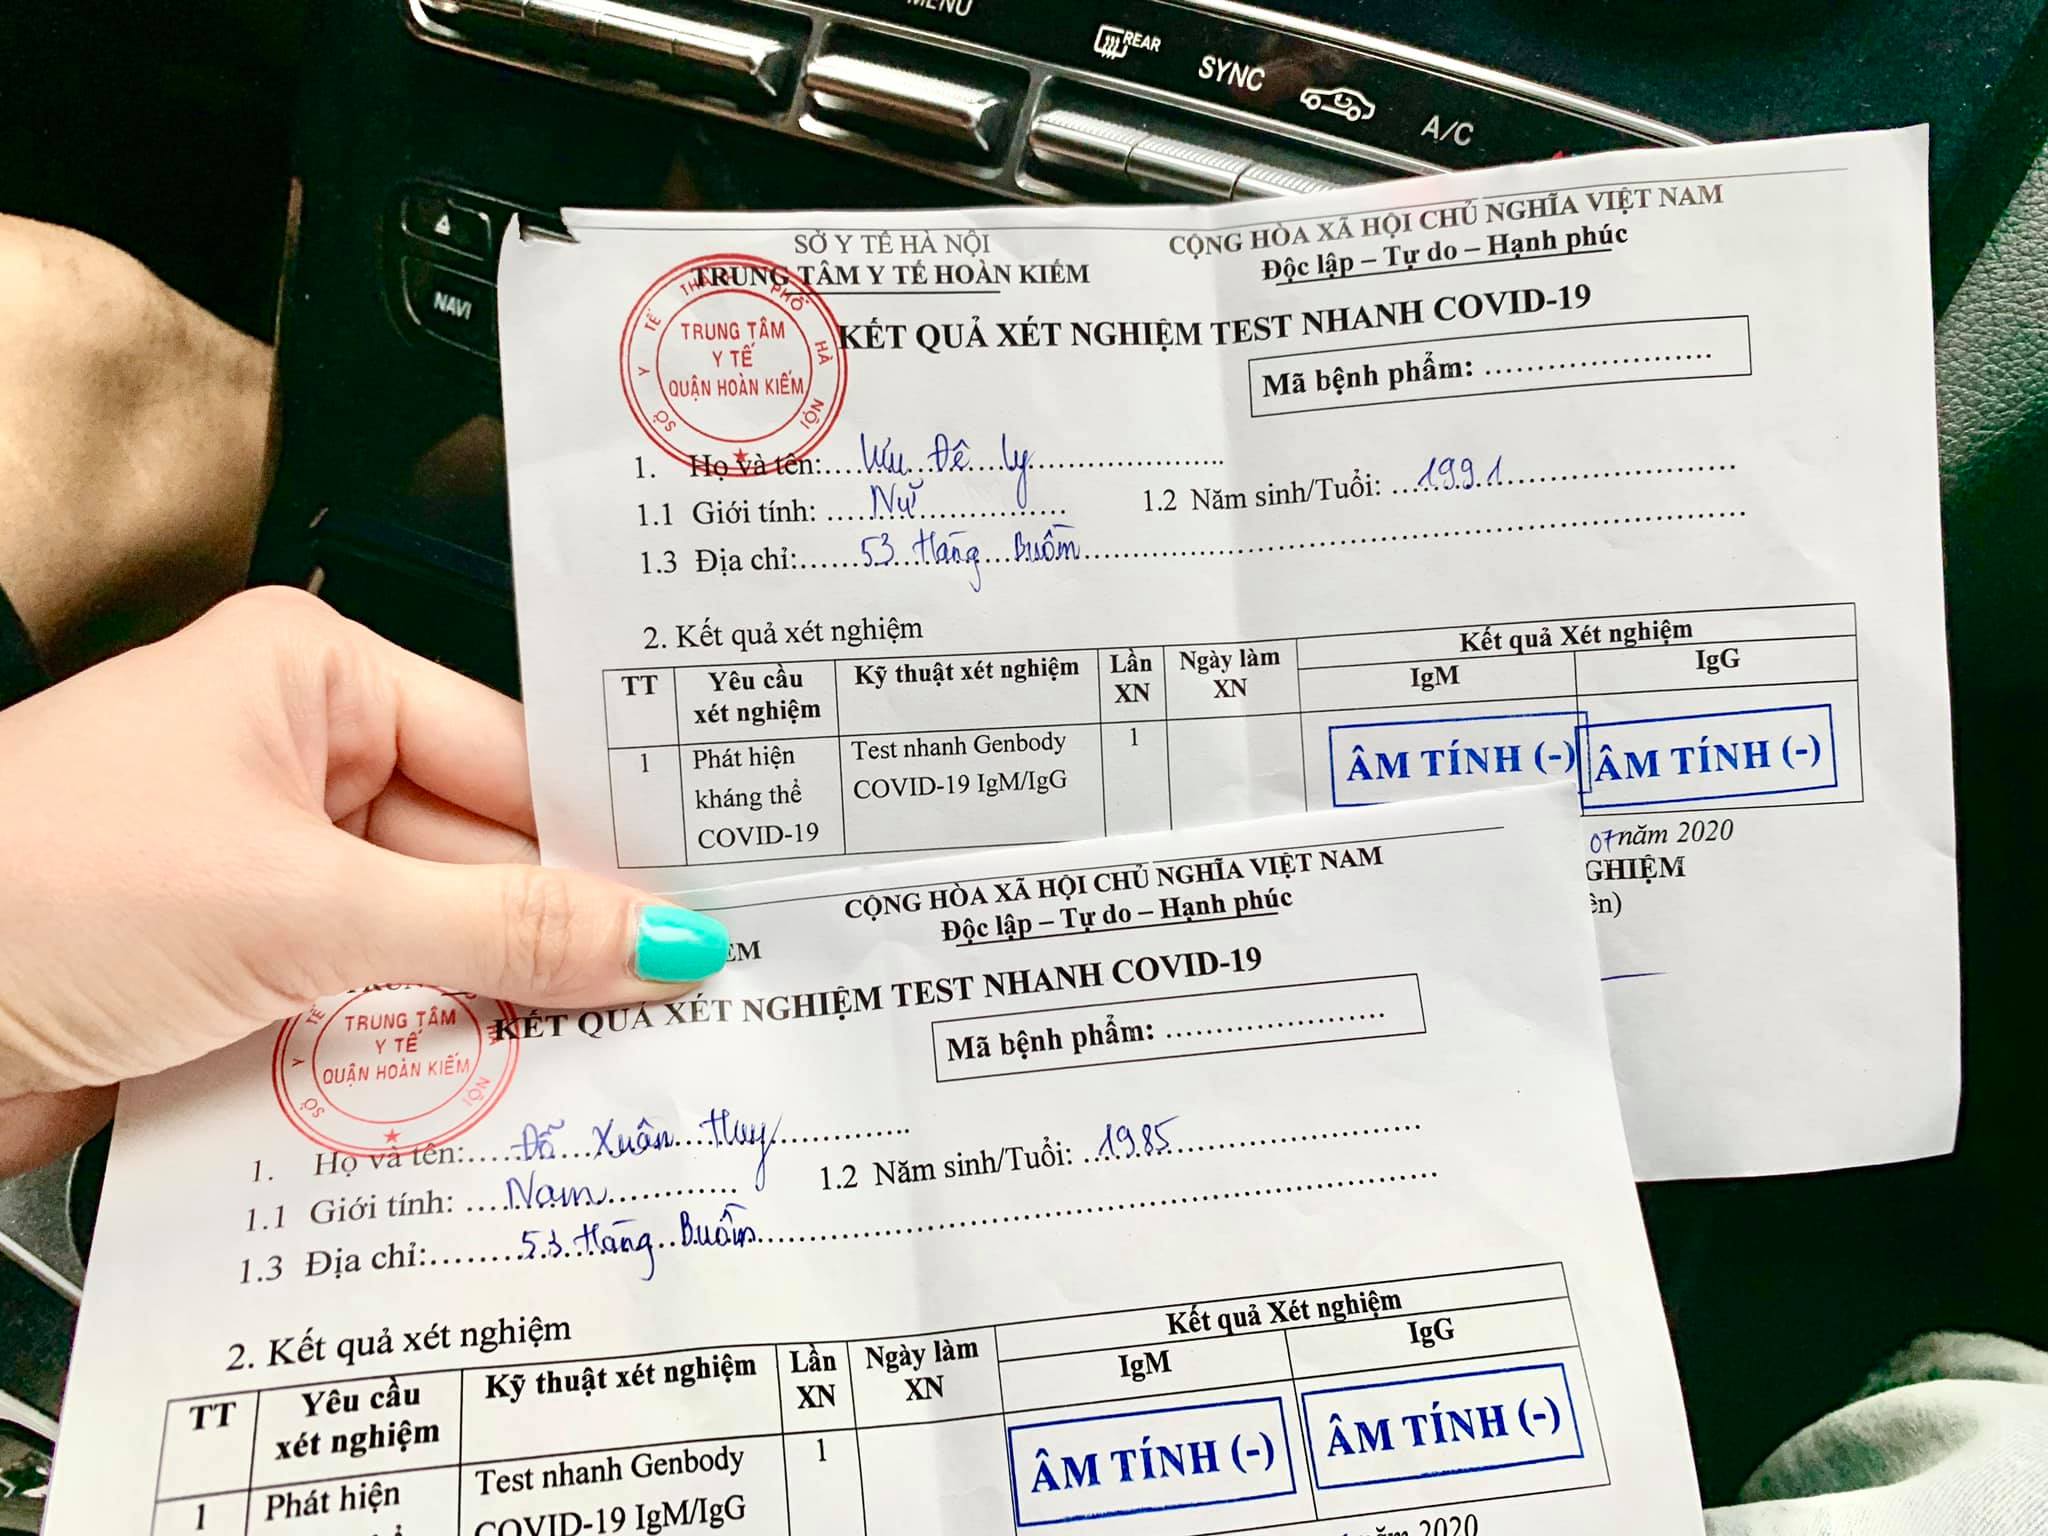 MENU
REAR
SYNC
A/C
NAVI
SỞ Y TẾ HÀ NỘI
TRUNG TÂM Y TẾ HOÀN KIẾM
CỘNG HÒA XÃ HỘI CHỦ NGHĨA VIỆT NAM
Độc lập – Tự do – Hạnh phúc
SỞ Y TẾ THÀNH PHỐ HÀ NỘI
TRUNG TÂM
Y TẾ
QUẬN HOÀN KIẾM
KẾT QUẢ XÉT NGHIỆM TEST NHANH COVID-19
Mã bệnh phẩm: ........................
1. Họ và tên:.... Lưu Đê Ly........................
1.1 Giới tính: ..... Nữ ...................... 1.2 Năm sinh/Tuổi: ... 1991 ........................
1.3 Địa chỉ:...... 53 Hàng Buồm ........................
2. Kết quả xét nghiệm
TT Yêu cầu xét nghiệm Kỹ thuật xét nghiệm Lần XN Ngày làm XN Kết quả Xét nghiệm
IgM IgG
1 Phát hiện Test nhanh Genbody 1 ÂM TÍNH (-) ÂM TÍNH (-)
kháng thể COVID-19 IgM/IgG
COVID-19
07 năm 2020
GHIỆM
ên)
CỘNG HÒA XÃ HỘI CHỦ NGHĨA VIỆT NAM
Độc lập – Tự do – Hạnh phúc
ẾM
TRUNG TÂM
Y TẾ
QUẬN HOÀN KIẾM
KẾT QUẢ XÉT NGHIỆM TEST NHANH COVID-19
Mã bệnh phẩm: ........................
1. Họ và tên:..... Đỗ Xuân Huy ...............
1.1 Giới tính: .... Nam ............. 1.2 Năm sinh/Tuổi: .. 1985 ........................
1.3 Địa chỉ:........ 53 Hàng Buồm ........................
2. Kết quả xét nghiệm
TT Yêu cầu xét nghiệm Kỹ thuật xét nghiệm Lần XN Ngày làm XN Kết quả Xét nghiệm
IgM IgG
1 Phát hiện Test nhanh Genbody 1 ÂM TÍNH (-) ÂM TÍNH (-)
COVID-19 IgM/IgG
năm 2020